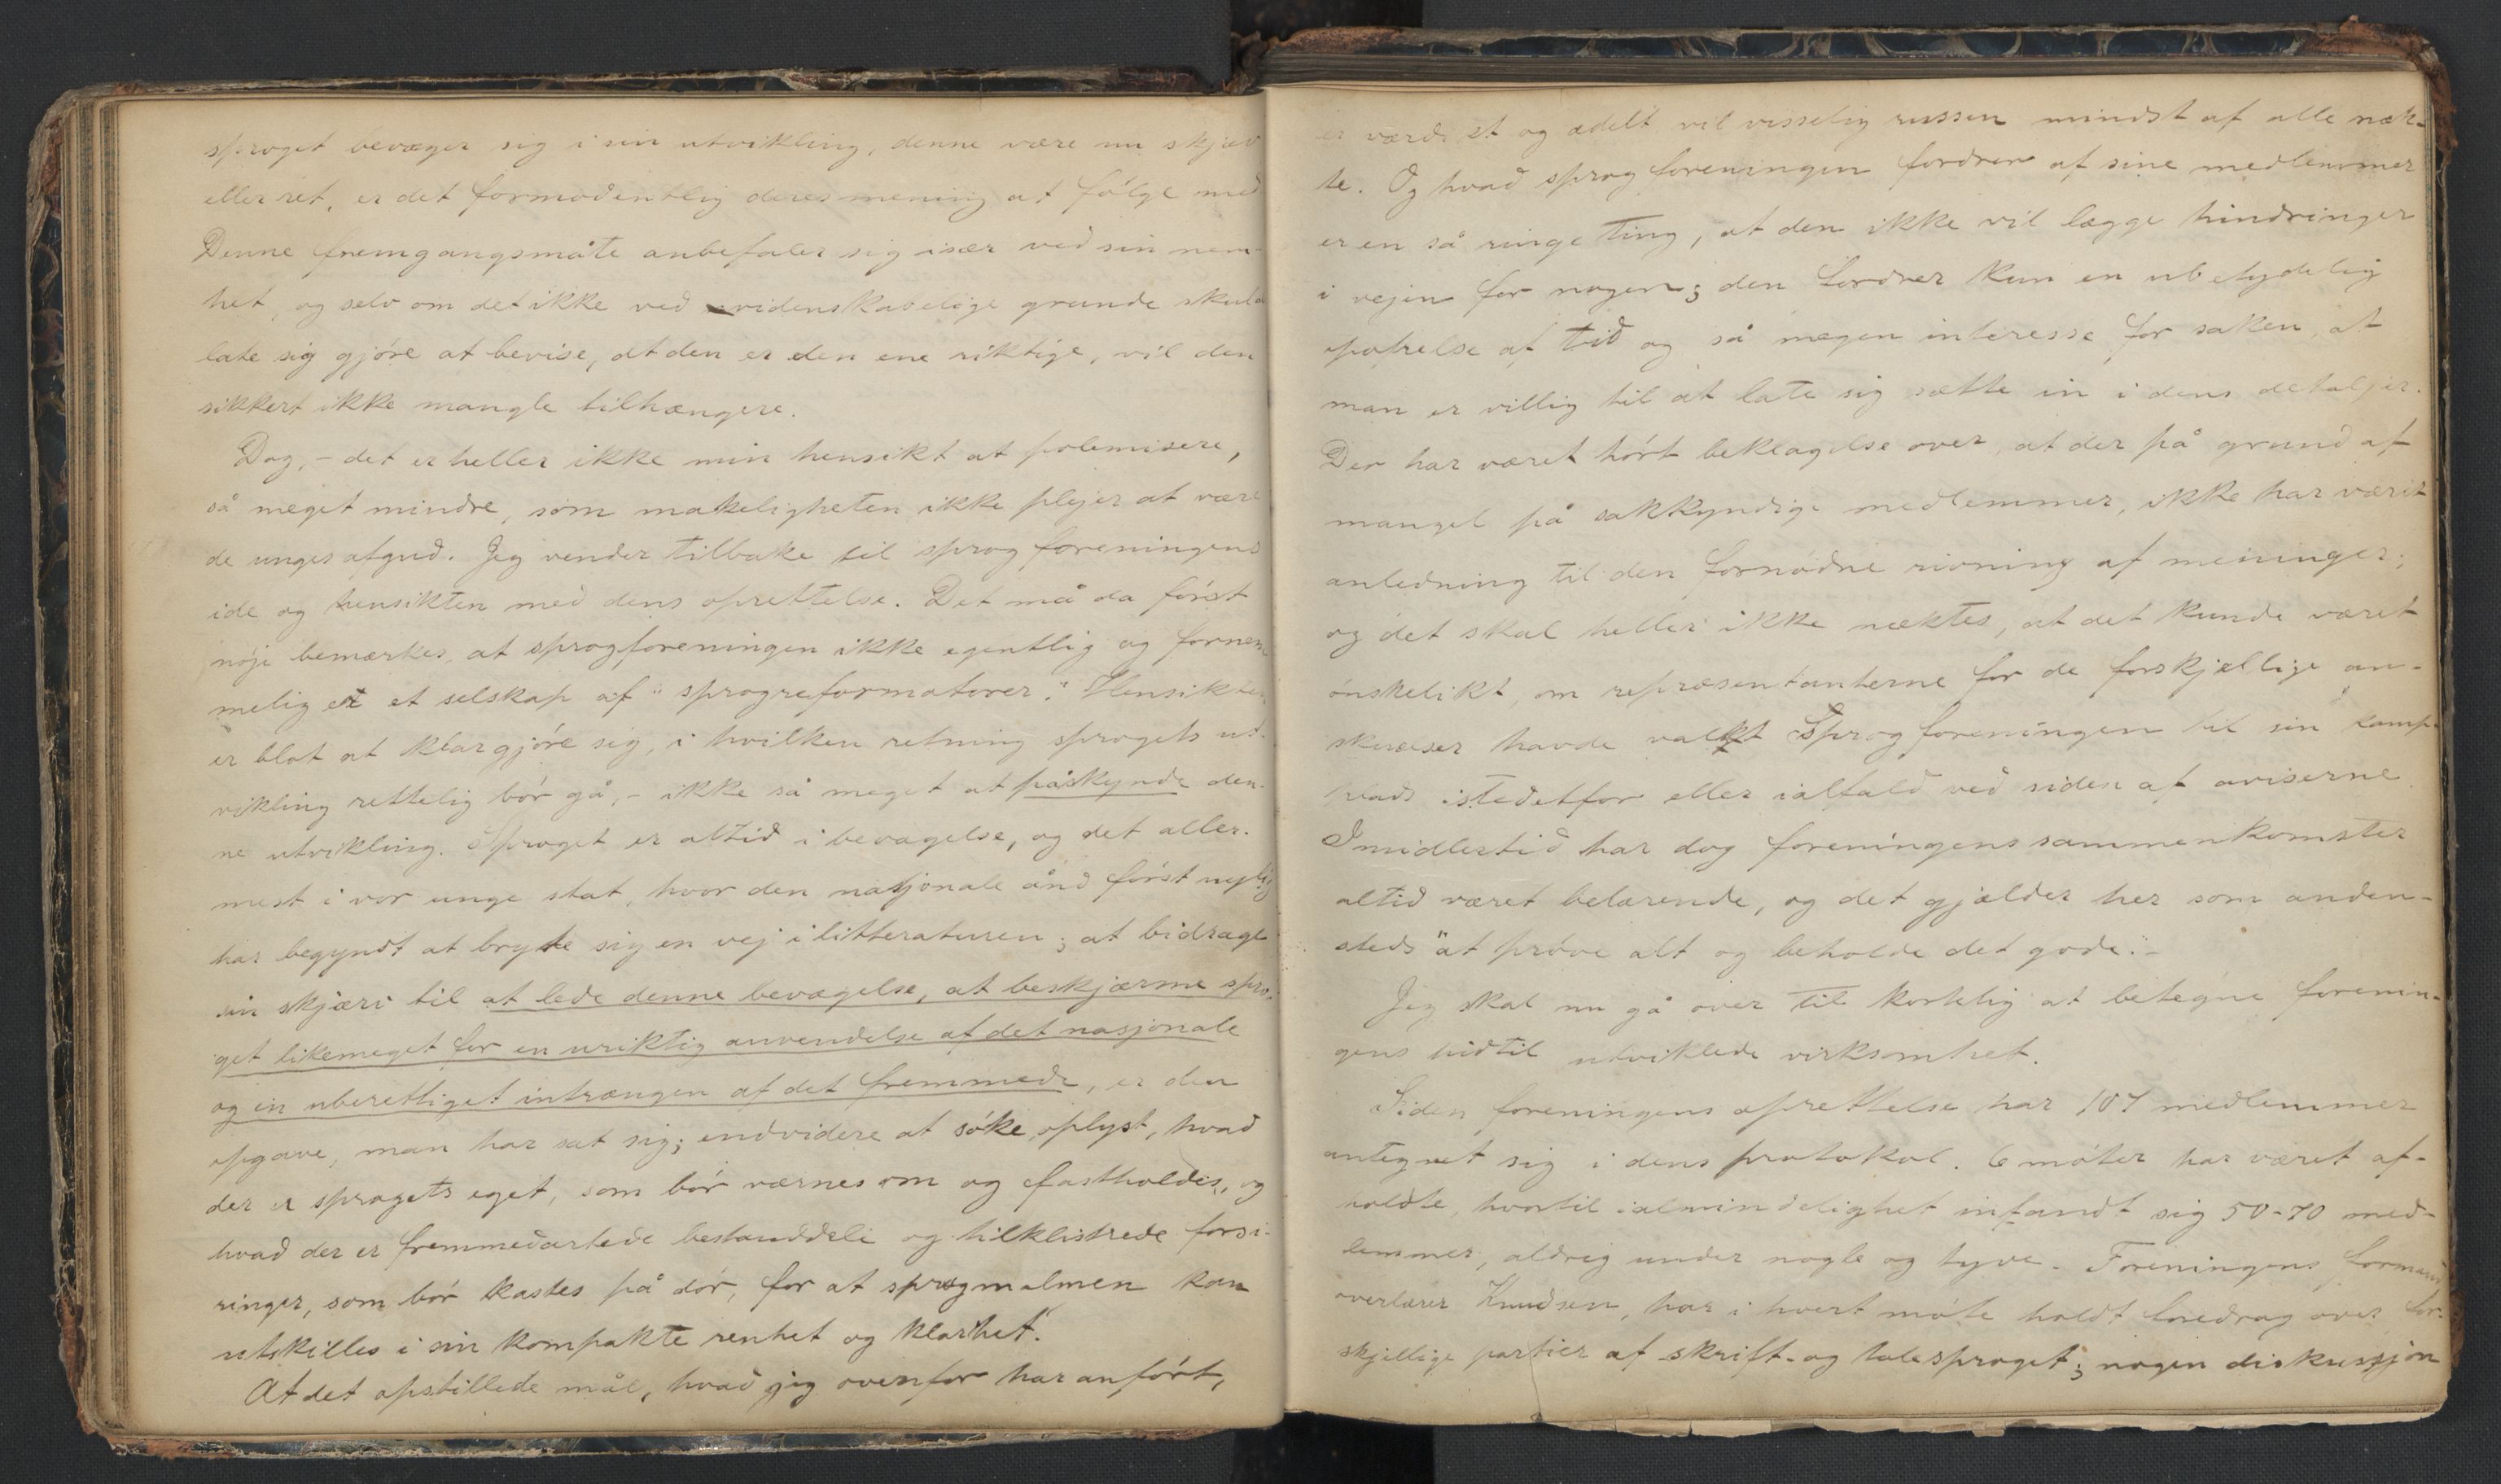 sproget bevæger sig i sin utvikling, denne være nu skjæv
eller ret, er det formodentlig deres mening at følge med
Denne fremgangsmåte anbefaler sig især ved sin nem-
het, og selv om det ikke ved videnskabelige grunde skulde
late sig gjöre at bevise, at den er den ene riktige, vil den
sikkert ikke mangle tilhængere.
Dog, – det er heller ikke min hensikt at polemisere,
så meget mindre, som makeligheten ikke plejer at være
de unges afgud. Jeg vender tilbake til sprogforeningens
ide og hensikten med dens oprettelse. Det må da först
nöje bemærkes, at sprogforeningen ikke egentlig og fornem
melig er et selskap af "sprogreformatorer." Hensikten
er blot at klargjöre sig, i hvilken retning sprogets ut-
vikling rettelig bör gå, – ikke så meget at påskynde den-
ne utvikling. Sproget er altid i bevægelse, og det aller-
mest i vor unge stat, hvor den nasjonale ånd först nylig
har begyndt at bryte sig en vej i litteraturen; at bidrage
sin skjærv til at lede denne bevægelse, at beskjærme spro-
get likemeget for en uriktig anvendelse af det nasjonale
og en uberettiget intrængen af det fremmede, er den
opgave, man har sat sig; endvidere at söke oplyst, hvad
der er sprogets eget, som bör værnes om og fastholdes, og
hvad der er fremmedartede bestanddele og tilklistrede forsi-
ringer, som bör kastes på dör, for at sprogmalmen kan
utskilles i sin kompakte renhet og klarhet."
At det opstillede mål, hvad jeg ovenfor har anfört,
er værdi et og ædelt vil visselig russen mindst af alle næk-
te. Og hvad sprogforeningen fordrer af sine medlemmer
er en så ringe ting, at den ikke vil lægge hindringer
i vejen for nogen; den fordrer kun en ubetydelig
opofrelse af tid og så megen interesse for saken, at
man er villig til at late sig sætte in i dens detaljer.
Der har været hört beklagelse over, at der på grund af
mangel på sakkyndige medlemmer, ikke har været
anledning til den fornødne rivning af meninger;
og det skal heller ikke næktes, at det kunde været
önskelikt, om repræsentanterne for de forskjellige an-
skuelser havde valgt Sprogforeningen til sin kamp-
plads istedetfor eller ialfald ved siden af aviserne.
Imidlertid har dog foreningens sammenkomster
altid været belærende, og det gjælder her som anden-
steds "at pröve alt og beholde det gode". –
Jeg skal nu gå over til kortelig at betegne forenin-
gens hidtil utviklede virksomhet.
Siden foreningens oprettelse har 107 medlemmer
antegnet sig i dens protokol. 6 möter har været af-
holdte, hvortil i almindelighet infandt sig 50-70 med-
lemmer, aldrig under nogle og tyve. Foreningens formand
overlærer Knudsen, har i hvert möte holdt foredrag over for-
skjellige partier af skrift- og talesproget; nogen diskussjon